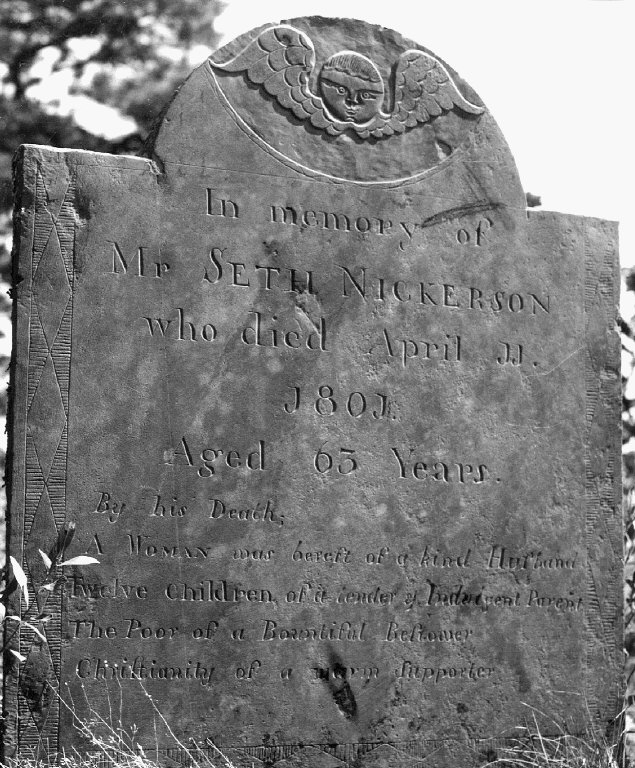 In memory of
Mr SETH NICKERSON
who died April 11.
1801.
Aged 63 Years.
By his Death;
A WOMAN was bereft of a kind Huſband
Twelve Children, of a tender & Indulgent Parent
The Poor of a Bountiful Beſtower
Chriſtianity of a warm ſupporter